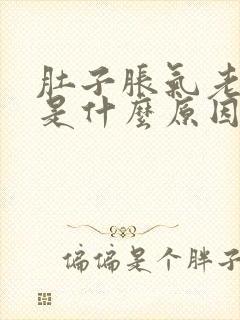 肚子脹氣老
是什麼原因
偏偏是个胖子